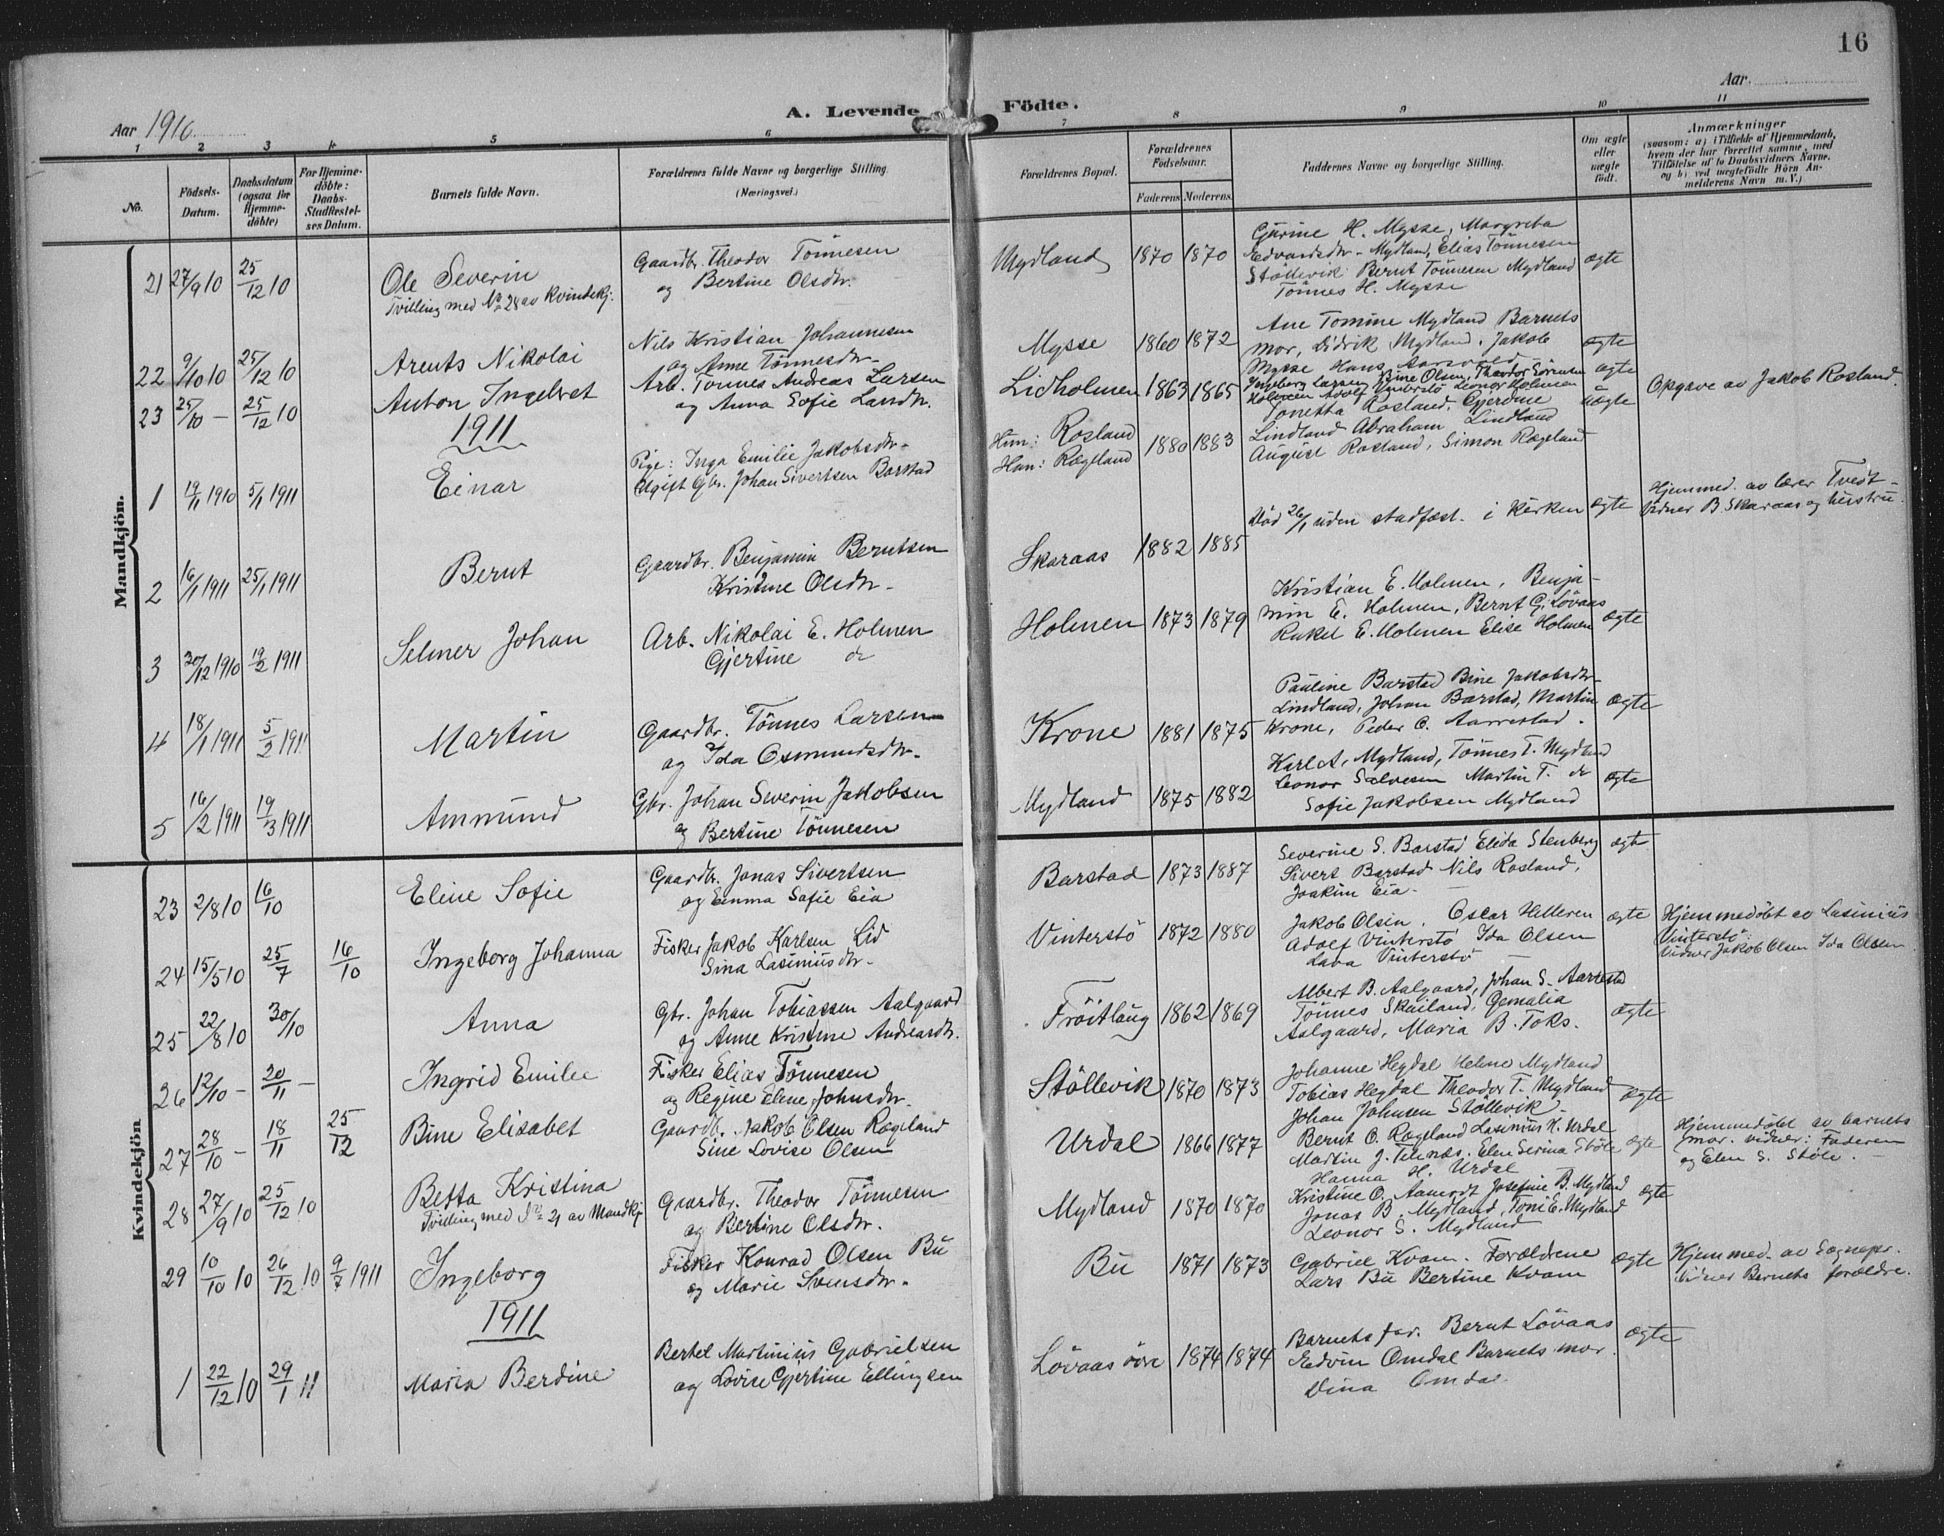 16
Aar 1910
A. Levende
Födte.
Aar
1 2 3 4 5 6 7 8 9 10 11
No.
Födsels-
Datum.
Daabsdatum
(ogsaa for
Hjemme-
döbte)
For Hjemme-
döbte:
Daabs-
Stadfæstel-
ses Datum.
Barnets fulde Navn.
Forældrenes fulde Navne og borgerlige Stilling
(Næringsvei.)
Forældrenes Bopæl.
Forældrenes
Födselsaar.
Faderens Moderens
Faddernes Navne og borgerlige Stilling.
Om ægte
eller
uægte
födt.
Anmærkninger
(saasom: a) i Tilfælde af Hjemmedaab,
hvem der har forrettet samme, med
Tilföielse af to Daabsvidners Navne,
og b) ved uægtefödte Börn An-
melderens Navn m. V.)
Mandkjön.
21 27/9 10 25/12 10
Ole Severin
Tvilling med No 28 av Kvindekj.
Gaardbr. Theodor Tönnesen
og Bertine Olsdtr.
Mydland 1870 1870
Gurine H. Mysse, Margrita
Edvardsdtr. Mydland, Elias Tönnesen
Stöllevik Bernt Tönnesen Mydland
Tönnes H. Mysse
ægte
22 9/10 10 25/12 10
Arents Nikolai
Nils Kristian Johannesen
og Anne Tönnesdtr.
Mysse 1860 1872
Ane Tomine Mydland Barnets
mor, Didrik Mydland, Jakob
Mysse Hans Aarsvold
ægte
23 25/10 - 25/12 10
Anton Ingelvet
Arb. Tönnes Andreas Larsen
og Anna Sofie Larsdtr.
Lidholmen 1863 1865
Ingeborg Larsen Bine Olsen, Theodor Sörensen
Holmen Adolf Vinterstö Leonor Holmen
ægte
1911
1 19/11 1910 5/1 1911
Einar
Pige: Inga Emilie Jakobsdtr.
Ugift Gbr. Johan Sivertsen Barstad
Hun: Rosland
Han: Rægeland
1880 1883
Tonetta Rosland, Gjerdine
Lindland Abraham Lindland
August Rosland, Simon Rægeland
uægte
Opgave av Jakob Rosland.
2 16/1 1911 25/1 1911
Bernt
Gaardbr. Benjamin Berntsen
Kristine Olsdtr.
Skaraas 1882 1885
död 26/1 uden stadfæst. i kirken
ægte
Hjemmed. av lærer Tveit -
vidner B Skaraas og hustru.
3 30/12 1910 19/2 1911
Selmer Johan
Arb. Nikolai E. Holmen
Gjertine do
Holmen 1873 1879
Kristian E. Holmen, Benja-
min E. Holmen, Bernt G. Lövaas
Rakel E. Holmen Elise Holmen
ægte
4 18/1 1911 5/3 1911
Martin
Gaardbr. Tönnes Larsen
og Ida Osmundsdtr.
Krone 1881 1875
Pauline Barstad Bine Jakobsdtr
Lindland, Johan Barstad, Martin
Krone, Peder O. Aarrestad.
ægte
5 16/2 1911 19/3 1911
Ammund
Gbr. Johan Severin Jakobsen
og Bertine Tönnesen
Mydland 1875 1882
Karl A. Mydland, Tönnes T. Mydland
Leonor Salvesen Martin T. do
Sofie Jakobsen Mydland
ægte
Kvindekjön
23 2/8 10 16/10
Eline Sofie
Gaardbr. Jonas Sivertsen
og Emma Sofie Eia
Barstad 1873 1887
Severine S. Barstad Elida Stenberg
Sivert Barstad Nils Rosland,
Joakim Eia.
ægte
24 15/5 10 25/7 16/10
Ingeborg Johanna
Fisker Jakob Karlsen Lid
Sina Lasiniusdtr.
Vinterstö 1872 1880
Jakob Olsen, Oscar Hitteren
Adolf Vinterstö Ida Olsen
Lava Vinterstö
ægte
Hjemmedöbt av Lasinius
Vinterstö
vidner Jakob Olsen Ida Olsen
25 22/8 10 30/10
Anna
Gbr. Johan Tobiassen Aalgaard
og Anne Kristine Andreasdtr.
Fröitlaug 1862 1869
Albert B. Aalgaard, Johan S. Aarrestad
Tönnes Skailand, Gemalia
Aalgaard, Maria B. Toks.
ægte
26 12/10 - 20/11 -
Ingrid Emilie
Fisker Elias Tönnesen
og Regine Elene Johnsdtr.
Stöllevik 1870 1873
Johanne Hegdal Helene Mydland
Tobias Hegdal Theodor T. Mydland
Johan Johnsen Stöllevik
ægte
27 28/10 - 18/11 25/12
Bine Elisabet
Gaardbr. Jakob Olsen Rægeland
Sine Lovise Olsen
Urdal 1866 1877
Bernt O. Rægeland Lasinius H. Urdal
Martin J. Telnæs. Elen Serina Stöle
Hanna H. Urdal
ægte
Hjemmedöbt av barnets
mor. vidner: Faderen
og Elen S. Stöle.
28 27/9 10 25/12 10
Betta Kristina
Tvilling med No 21 av Mandkj
Gaardbr. Theodor Tönnesen
og Bertine Olsdtr.
Mydland 1870 1870
Kristine O. Aamodt Josefine B. Mydland
Jonas B. Mydland, Toni E. Mydland
Leonor S. Mydland
ægte
29 10/10 10 26/12 10 9/7 1911
Ingeborg
Fisker Konrad Olsen Bu
og Marie Svensdtr.
Bu 1871 1873
Gabriel Kvam. Forældrene
Lars Bu Bertine Kvam
ægte
Hjemmed. av Sognepr.
vidner Barnets forældre.
1911
1 22/12 10 29/1 11
Maria Berdine
Bertel Martinius Gabrielsen
og Lovise Gjertine Ellingsen
Lövaas övre 1874 1874
Barnets far. Bernt Lövaas
Edvin Omdal Barnets mor.
Dina Omdal
ægte